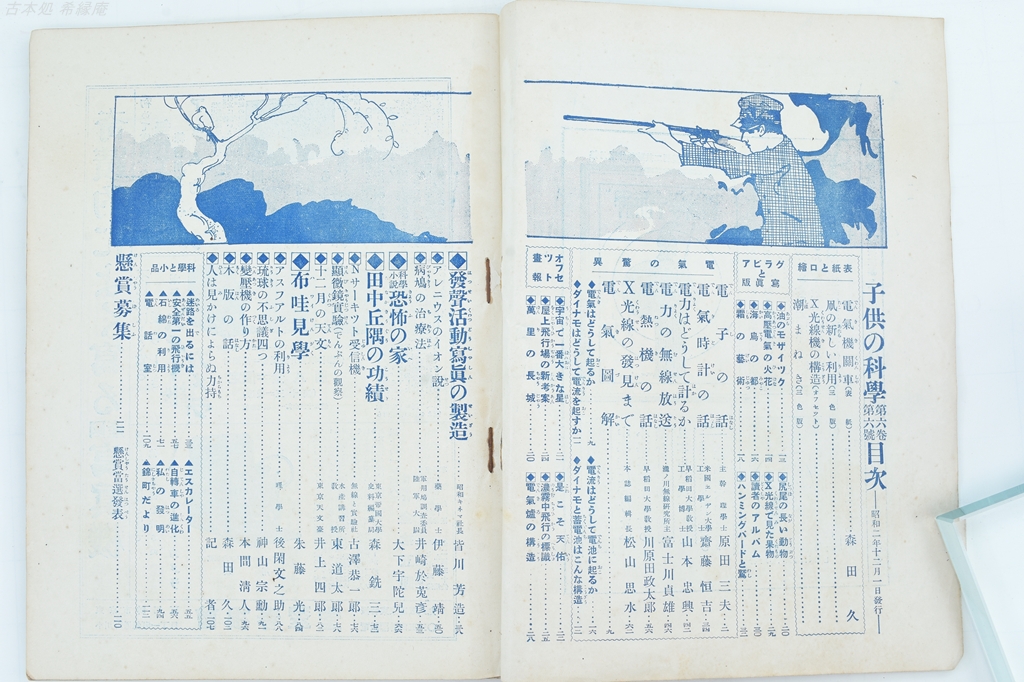 古本処 希縁庵
子供の科學 第六卷 第六號 目次 ――昭和二年十二月一日發行――
表紙と口繪
電氣機關車(表紙)
風の新しい利用(三色版)
X光線機の構造(オフセット)
潮まねき(三色版)
森田久
グラビアと寫眞版
◆油のモザイック
◆高壓電氣の火花
◆海鳥の都
◆霜の藝術
◆尻尾の長い動物
◆X光線で見た果物
◆讀者のアルバム
◆ハンミングバードと鷲
電氣の驚異
電子の話 主幹 理學士 原田三夫
電氣時計の話 米國エール大學 工學士 齋藤恒吉
電力はどうして計るか 早稻田大學教授 工學博士 山本忠興
電力の無線放送 磯ノ川無線研究所 富士川貞雄
電熱機の話 早稻田大學教授 川原田政太郎
X光線の發見まで 本誌編輯長 松山思水
電氣圖解
◆電氣はどうして起るか
◆ダイナモはどうして電流を起すか
◆電流はどうして電池に起るか
◆ダイナモと蓄電池はこんな構造
オフセット畫報
◆宇宙で一番大きな星
◆屋上飛行場の新考案
◆萬里の長城
◆是こそ天佑
◆濃霧中飛行の標識
◆電氣爐の構造
◆發聲活動寫眞の製造 昭和キネマ社長 皆川芳造
◆アレニウスのイオン說 藥學士 伊藤靖
◆病鳩の治療法 軍用鳩調査委員 陸軍大尉 井崎於菟彦
◆科學小說 恐怖の家 大下宇陀兒
◆田中丘隅の功績 東京帝國大學 史料編纂局 森銑三
◆Nサーキット受信機 無線と實驗社 古澤恭一郎
◆顯微鏡實驗(でんぷんの觀察) 水產講習所教授 東道太郎
◆十二月の天文 東京天文臺 井上四郎
◆布哇見學 朱藤光
◆アスファルトの利用 理學士 後閑文之助
◆琉球の不思議四つ 神山宗勳
◆變壓機の作り方 本間清人
◆木版の話 森田久
◆人は見かけによらぬ力持 記者
科學と小品
▲迷路を出るには
▲安全第一の飛行機
▲石綿の利用
▲電話室
▲エスカレーター
▲自轉車の進化
▲私の發明
▲錦町だより
懸賞募集
懸賞當選發表